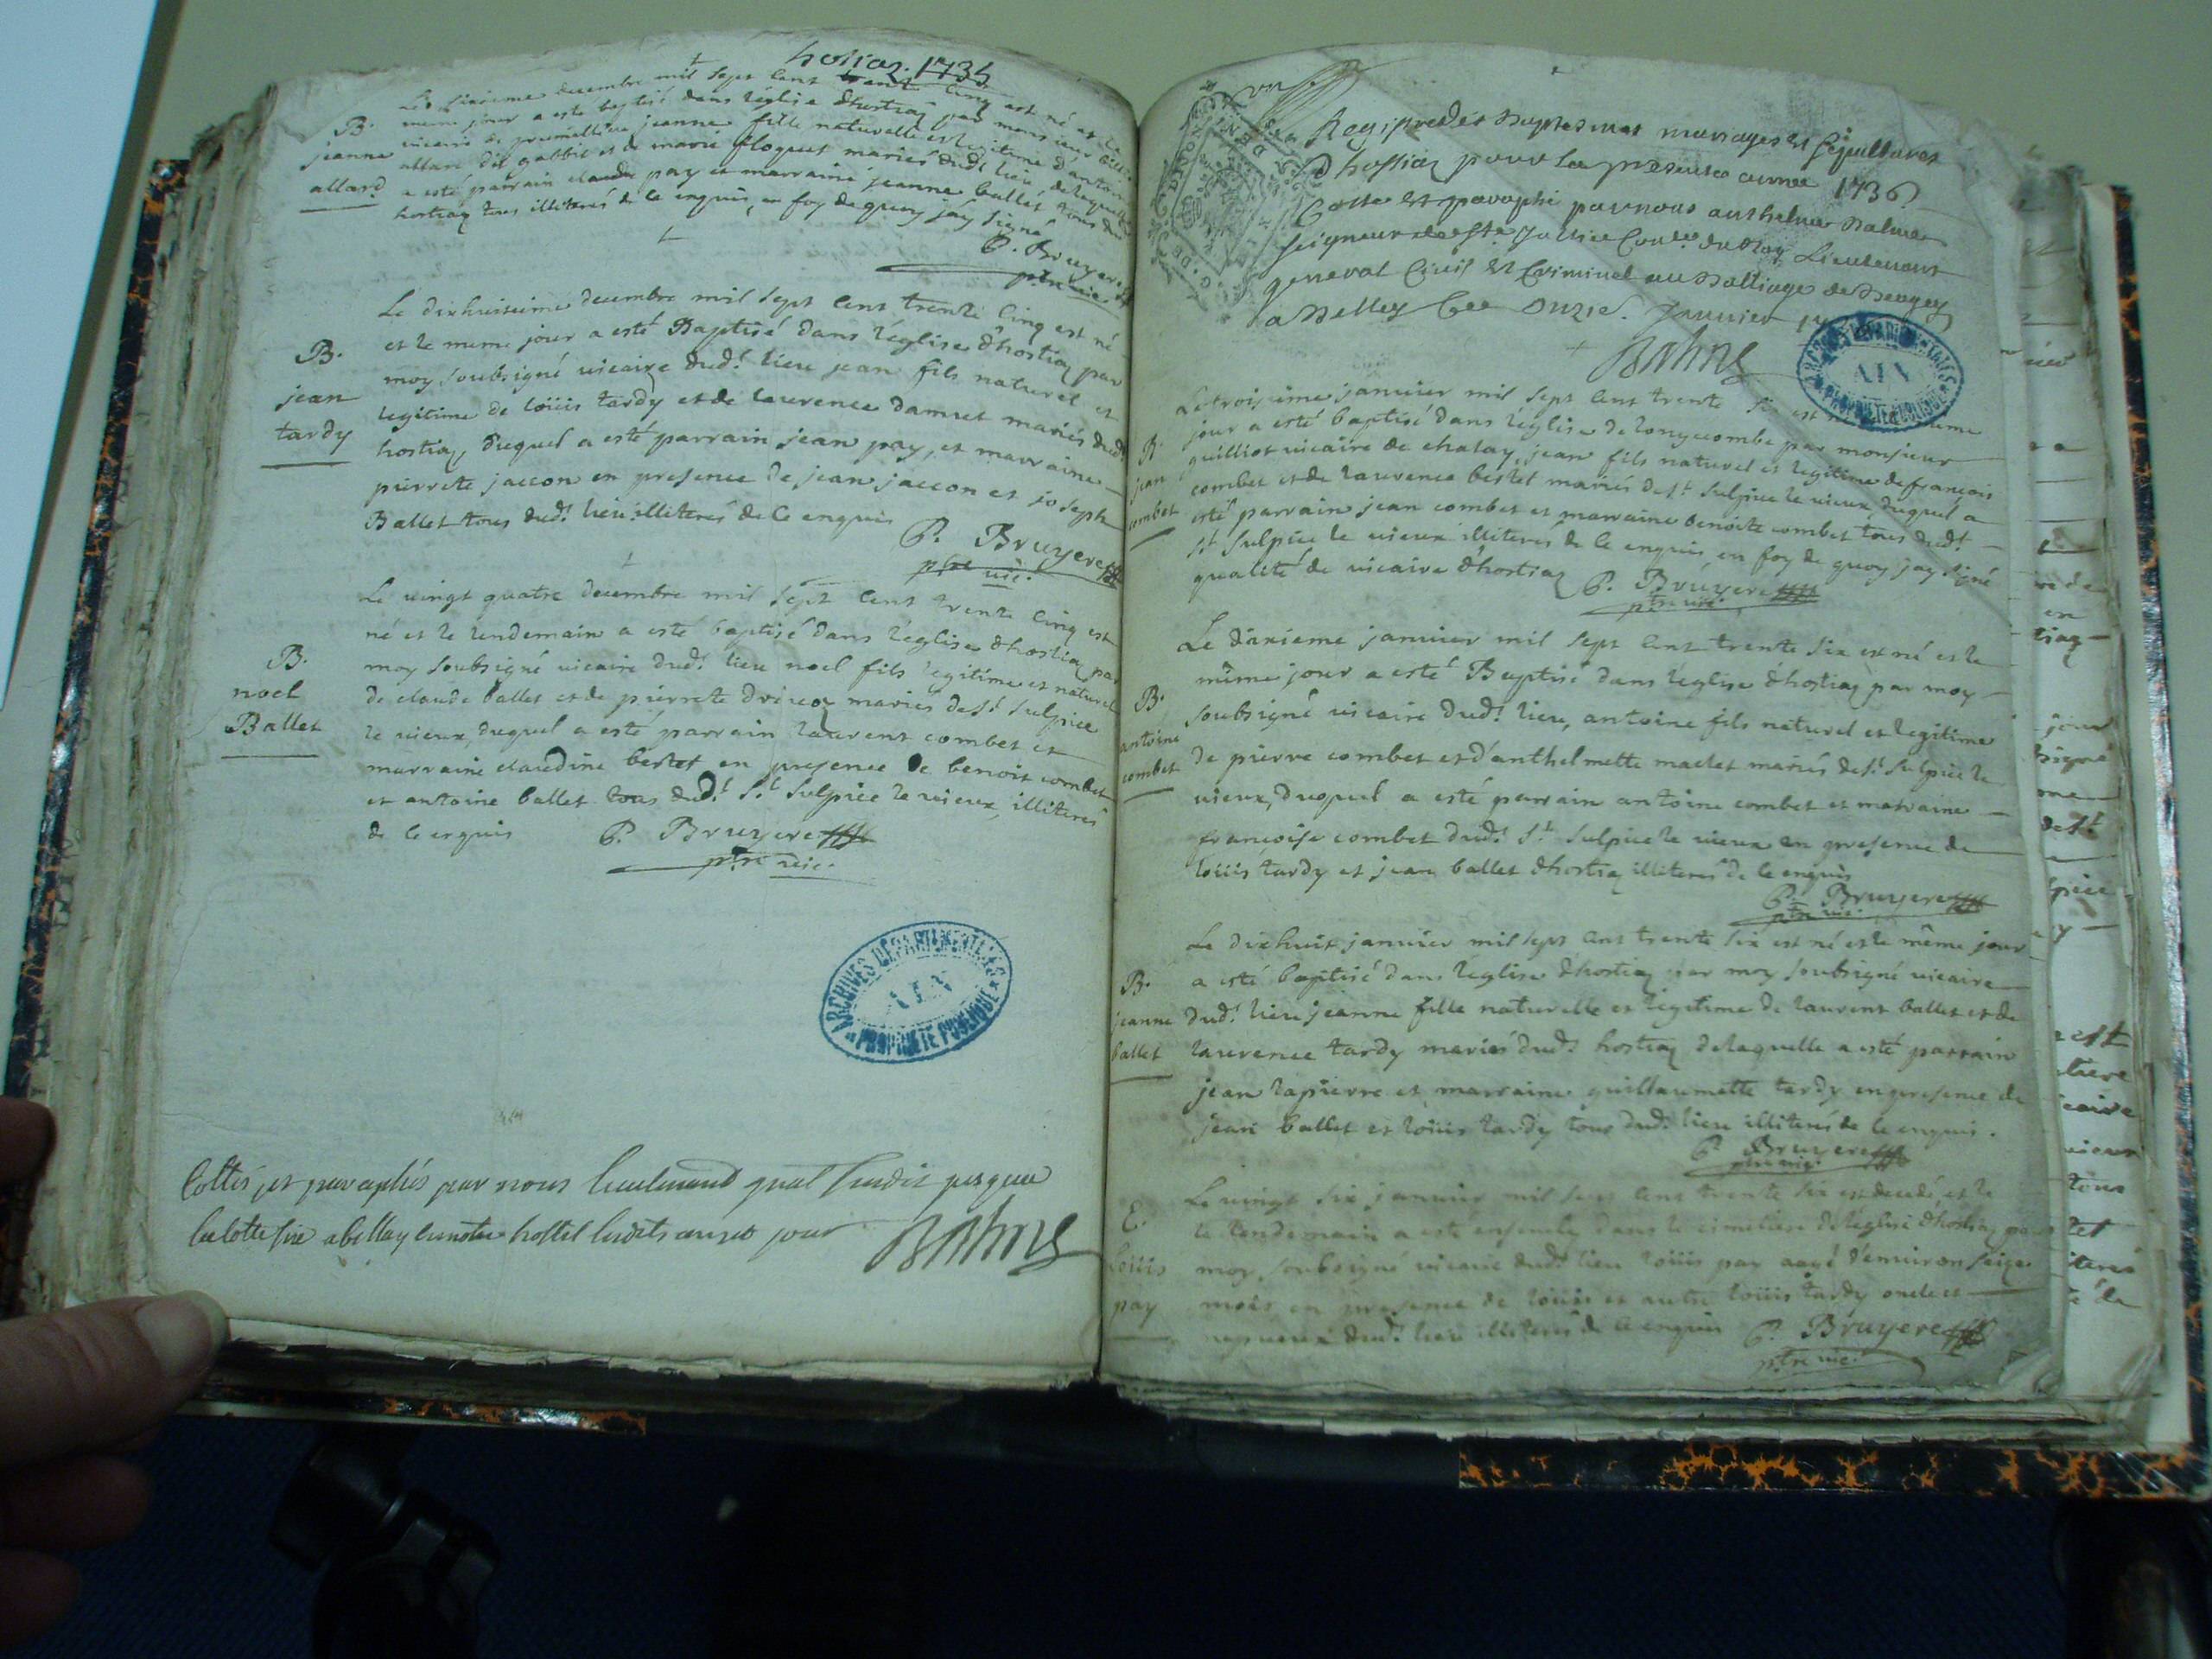 hostiaz. 1735
Le sixieme decembre mil sept cent trente cinq est né et le
meme jour a esté baptisé dans léglise dhostiaz par monsieur
vicaire de premillieu jeanne fille naturelle et legitime d'antoine
allard dit gabbit et de marie floquet mariés dud! lieu, de laquelle
a esté parrain claude pay et marraine jeanne ballet tous dud!
hostiaz tous illiterés de ce enquis, en foy de quoy jay signé
B.
jeanne
allard
P. Bruyere
ptre vic.
Le dixhuitieme decembre mil sept cent trente cinq est né
et le meme jour a esté Baptisé dans léglise dhostiaz par
moy soubsigné vicaire dud! lieu jean fils naturel et
legitime de loüis tardy et de laurence damet mariés dud!
hostiaz, duquel a esté parrain jean pay, et marraine
pierrete jaccon en presence de jean jaccon et joseph
Ballet tous dud! lieu illiterés de ce enquis
B.
jean
tardy
P. Bruyere
ptre vic.
Le vingt quatre decembre mil sept cent trente cinq est
né et le lendemain a esté baptisé dans léglise dhostiaz par
moy soubsigné vicaire dud! lieu noel fils legitime et naturel
de claude ballet et de pierrete mariés de s.t sulpice
le vieux, duquel a esté parrain laurent combet et
marraine claudine bertet en presence de benoit combet
et antoine ballet tous dud! S.t Sulpice le vieux, illiterés
de ce enquis
B.
noel
Ballet
P. Bruyere
ptre vic.
ARCHIVES DEPARTEMENTALES
AIN
PROPRIETE PUBLIQUE
Cottés et paraphés par nous lieutenant gnal susdit jusques
la cotte six a bellay en notre hostel lesdits an et jour
Registre des Baptesmes mariages et sépultures
dhostiaz pour la presente année 1736
Cotté et paraphé par nous anthelme Balme
seigneur de Ste Jullie Con.er du Roy Lieutenant
general Civil et Criminel au Balliage de Beugey
a Belley Ce onzie. Janvier
ARCHIVES DEPARTEMENTALES
AIN
PROPRIETE PUBLIQUE
Le troisieme janvier mil sept cent trente six est né et le meme
jour a esté baptisé dans léglise de longecombe par monsieur
guilliot vicaire de chalay, jean fils naturel et legitime de francois
combet et de laurence bertet mariés de s.t sulpice le vieux duquel a
esté parrain jean combet et marraine benoite combet tous dud!
s.t sulpice le vieux illiterés de ce enquis en foy de quoy jay signé
qualité de vicaire dhostiaz
B.
jean
combet
P. Bruyere
ptre vic.
Le dixieme janvier mil sept cent trente six est né et le
même jour a esté Baptisé dans léglise dhostiaz par moy
soubsigné vicaire dud! lieu, antoine fils naturel et legitime
de pierre combet et d'anthelmette maclet mariés de s.t sulpice le
vieux, duquel a esté parrain antoine combet et marraine
francoise combet dud! S.t Sulpice le vieux en presence de
loüis tardy et jean ballet dhostiaz illiterés de ce enquis
B.
antoine
combet
P. Bruyere
ptre vic.
Le dixhuit janvier mil sept cent trente six est né et le même jour
a esté baptisé dans léglise dhostiaz par moy soubsigné vicaire
dud! lieu jeanne fille naturelle et legitime de laurent ballet et de
laurence tardy mariés dud! hostiaz de laquelle a esté parrain
jean lapierre et marraine guillaumette tardy en presence de
jean ballet et loüis tardy tous dud! lieu illiterés de ce enquis.
B.
jeanne
ballet
P. Bruyere
ptre vic.
Le vingt six janvier mil sept cent trente six est decedé et le
le lendemain a esté ensevely dans le cimetiere de léglise dhostiaz par
moy soubsigné vicaire dud! lieu loüis pay aagé d'environ seize
mois en presence de loüis et autre loüis tardy oncle et
nepveux dud! lieu illiterés de ce enquis
E.
loüis
pay
P. Bruyere
ptre vic.